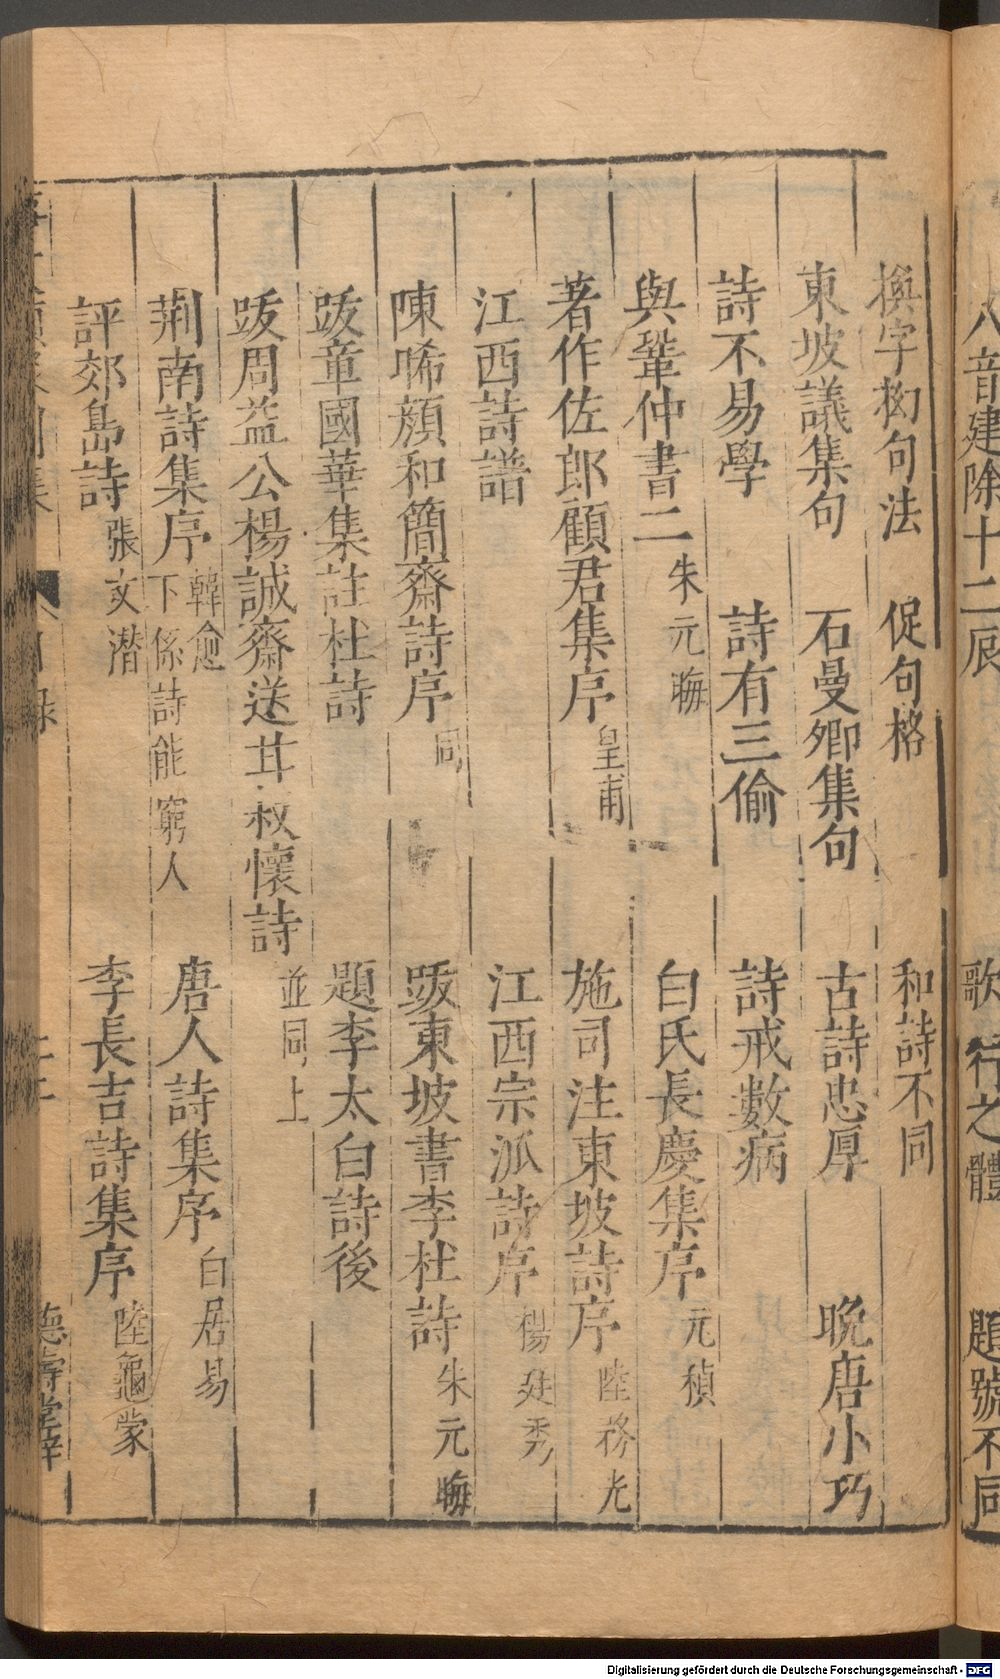 八音建除十二辰　歌行之體　題號不同
換字拗句法　促句格　和詩不同
東坡議集句　石曼卿集句　古詩忠厚　晚唐小巧
詩不易學　詩有三偷　詩戒數病
與鞏仲書二 朱元晦　白氏長慶集序 元稹
著作佐郎顧君集序 皇甫　施司注東坡詩序 陸務光
江西詩譜　江西宗派詩序 楊廷秀
陳晞顔和簡齋詩序 同　跋東坡書李杜詩 朱元晦
跋章國華集註杜詩　題李太白詩後
跋周益公楊誠齋送甘叔懷詩 並同上
荆南詩集序 韓愈 下係詩能窮人　唐人詩集序 白居易
評郊島詩 張文潛　李長吉詩集序 陸龜蒙
目錄 德壽堂梓
Digitalisierung gefördert durch die Deutsche Forschungsgemeinschaft - DFG